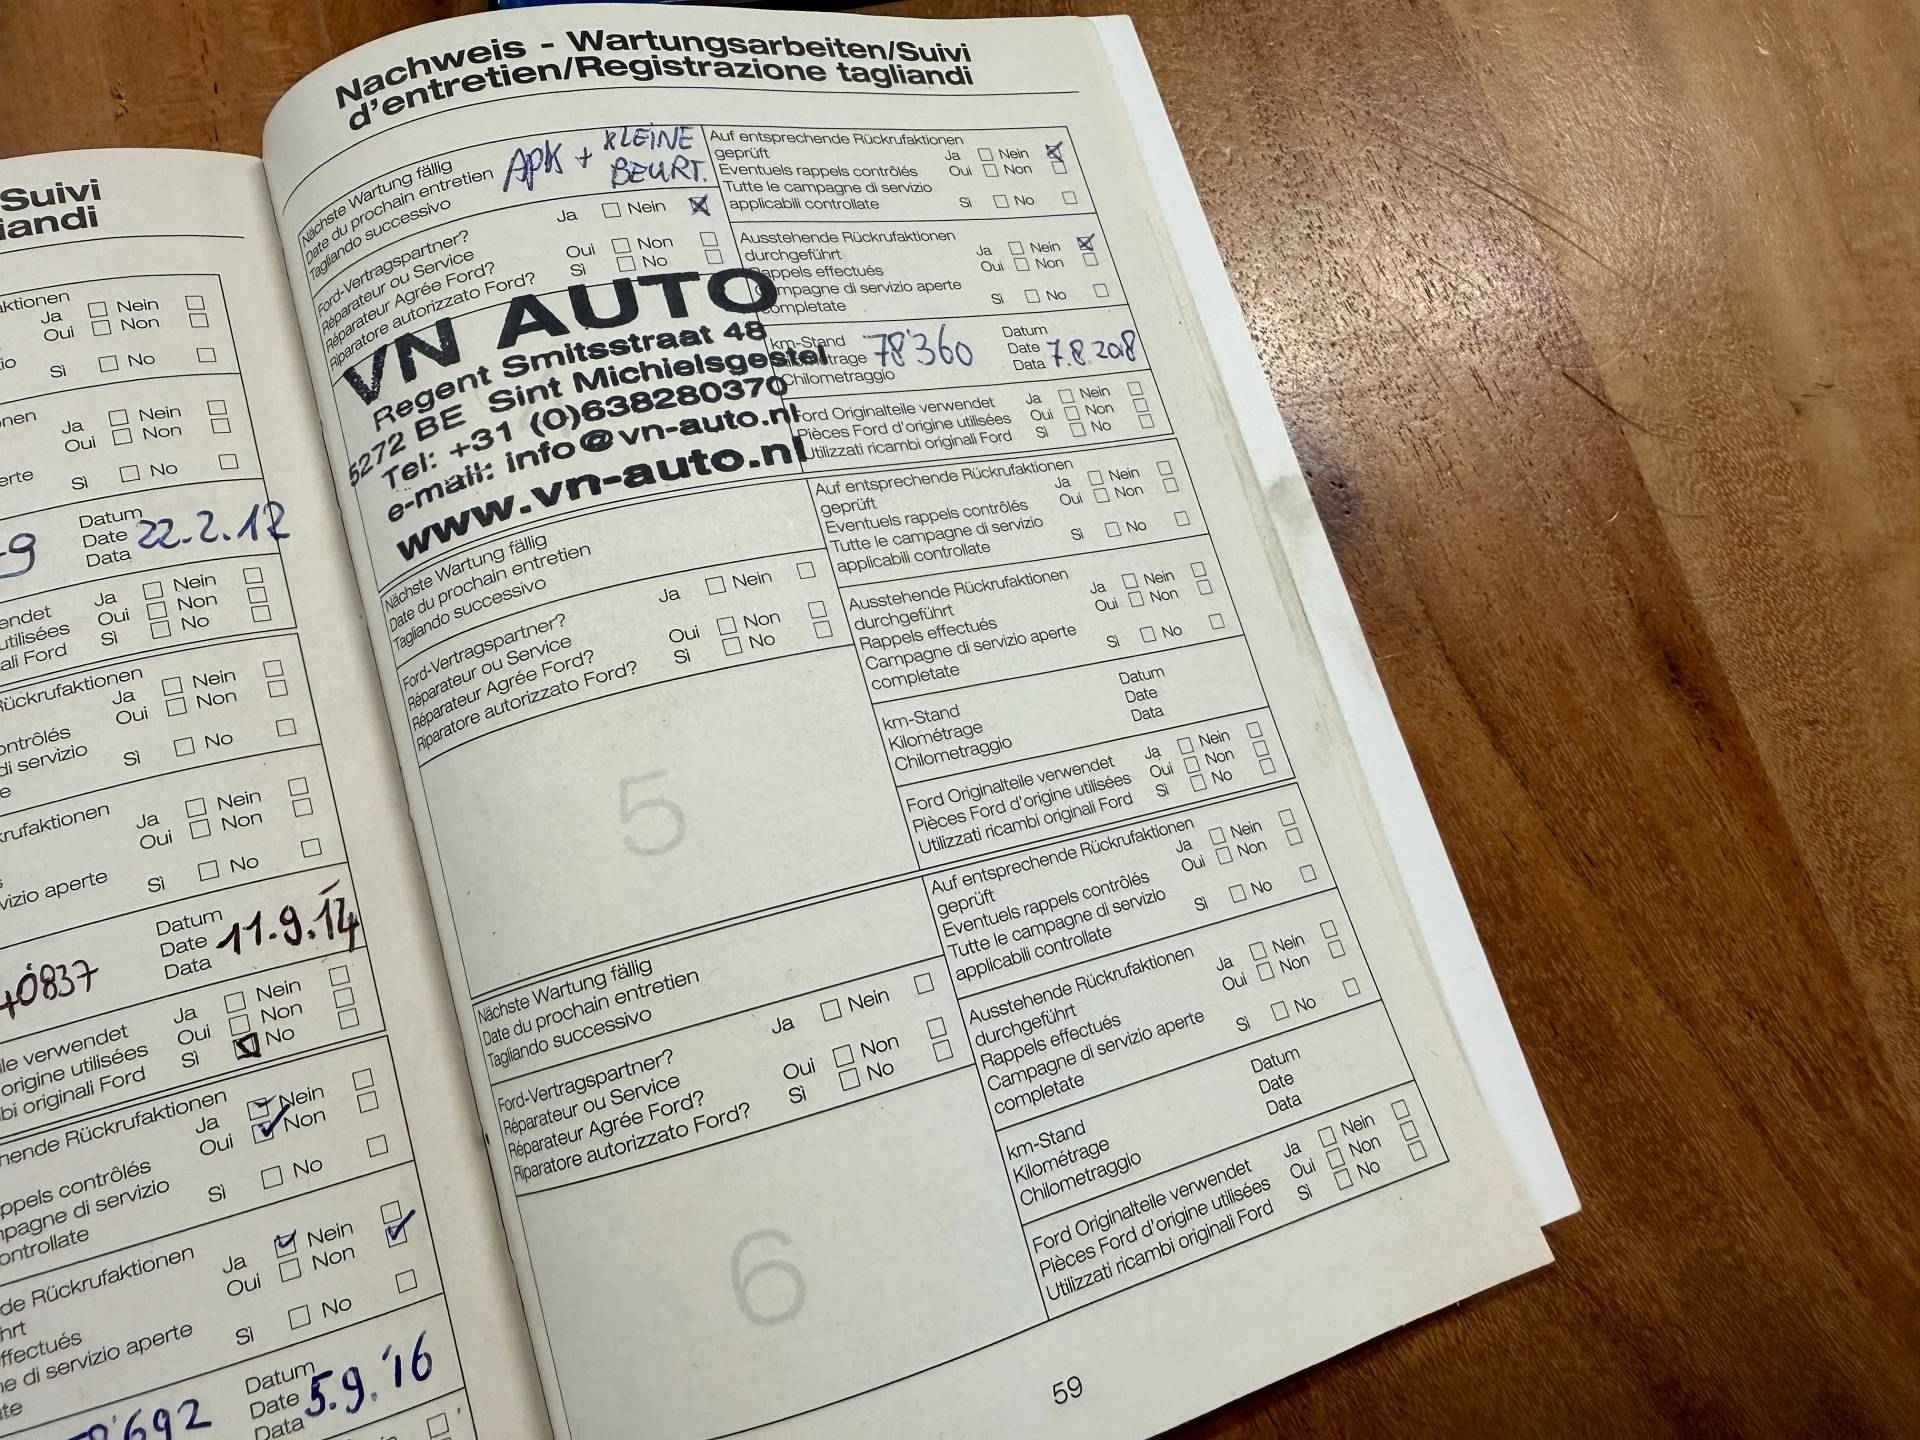 Suivi
iandi
aktionen
Ja Nein
Oui Non
Sì No
Ja Nein
Oui Non
Sì No
Datum
Date 22.2.12
Data
Ja Nein
Oui Non
Sì No
utilisées
ali Ford
Rückrufaktionen
Ja Nein
Oui Non
ontrôlés
di servizio
Sì No
krufaktionen
Ja Nein
Oui Non
vizio aperte
Sì No
Datum
Date 11.9.14
Data
40837
Ja Nein
ile verwendet
Oui Non
origine utilisées
Sì No
bi originali Ford
hende Rückrufaktionen
Ja Nein
Oui Non
ppels contrôlés
pagne di servizio
Sì No
ontrollate
de Rückrufaktionen
Ja Nein
hrt
Oui Non
ffectués
ne di servizio aperte
Sì No
Datum
Date 5.9.'16
Data
692
Nachweis - Wartungsarbeiten/Suivi
d'entretien/Registrazione tagliandi
Nächste Wartung fällig
Date du prochain entretien
Tagliando successivo
APK + KLEINE
BEURT.
Ford-Vertragspartner?
Ja Nein
Réparateur ou Service
Oui Non
Réparateur Agrée Ford?
Sì No
Riparatore autorizzato Ford?
VN AUTO
Regent Smitsstraat 48
5272 BE Sint Michielsgestel
Tel: +31 (0)638280370
e-mail: info@vn-auto.nl
www.vn-auto.nl
Auf entsprechende Rückrufaktionen
geprüft
Ja Nein
Eventuels rappels contrôlés
Oui Non
Tutte le campagne di servizio
applicabili controllate
Sì No
Ausstehende Rückrufaktionen
durchgeführt
Ja Nein
Rappels effectués
Oui Non
Campagne di servizio aperte
completate
Sì No
km-Stand
Kilométrage 78'360
Chilometraggio
Datum
Date 7.8.2018
Data
Ford Originalteile verwendet
Ja Nein
Pièces Ford d'origine utilisées
Oui Non
Utilizzati ricambi originali Ford
Sì No
Nächste Wartung fällig
Date du prochain entretien
Tagliando successivo
Ford-Vertragspartner?
Ja Nein
Réparateur ou Service
Oui Non
Réparateur Agrée Ford?
Sì No
Riparatore autorizzato Ford?
5
Auf entsprechende Rückrufaktionen
geprüft
Ja Nein
Eventuels rappels contrôlés
Oui Non
Tutte le campagne di servizio
applicabili controllate
Sì No
Ausstehende Rückrufaktionen
durchgeführt
Ja Nein
Rappels effectués
Oui Non
Campagne di servizio aperte
completate
Sì No
km-Stand
Kilométrage
Chilometraggio
Datum
Date
Data
Ford Originalteile verwendet
Ja Nein
Pièces Ford d'origine utilisées
Oui Non
Utilizzati ricambi originali Ford
Sì No
Nächste Wartung fällig
Date du prochain entretien
Tagliando successivo
Ford-Vertragspartner?
Ja Nein
Réparateur ou Service
Oui Non
Réparateur Agrée Ford?
Sì No
Riparatore autorizzato Ford?
6
Auf entsprechende Rückrufaktionen
geprüft
Ja Nein
Eventuels rappels contrôlés
Oui Non
Tutte le campagne di servizio
applicabili controllate
Sì No
Ausstehende Rückrufaktionen
durchgeführt
Ja Nein
Rappels effectués
Oui Non
Campagne di servizio aperte
completate
Sì No
km-Stand
Kilométrage
Chilometraggio
Datum
Date
Data
Ford Originalteile verwendet
Ja Nein
Pièces Ford d'origine utilisées
Oui Non
Utilizzati ricambi originali Ford
Sì No
59